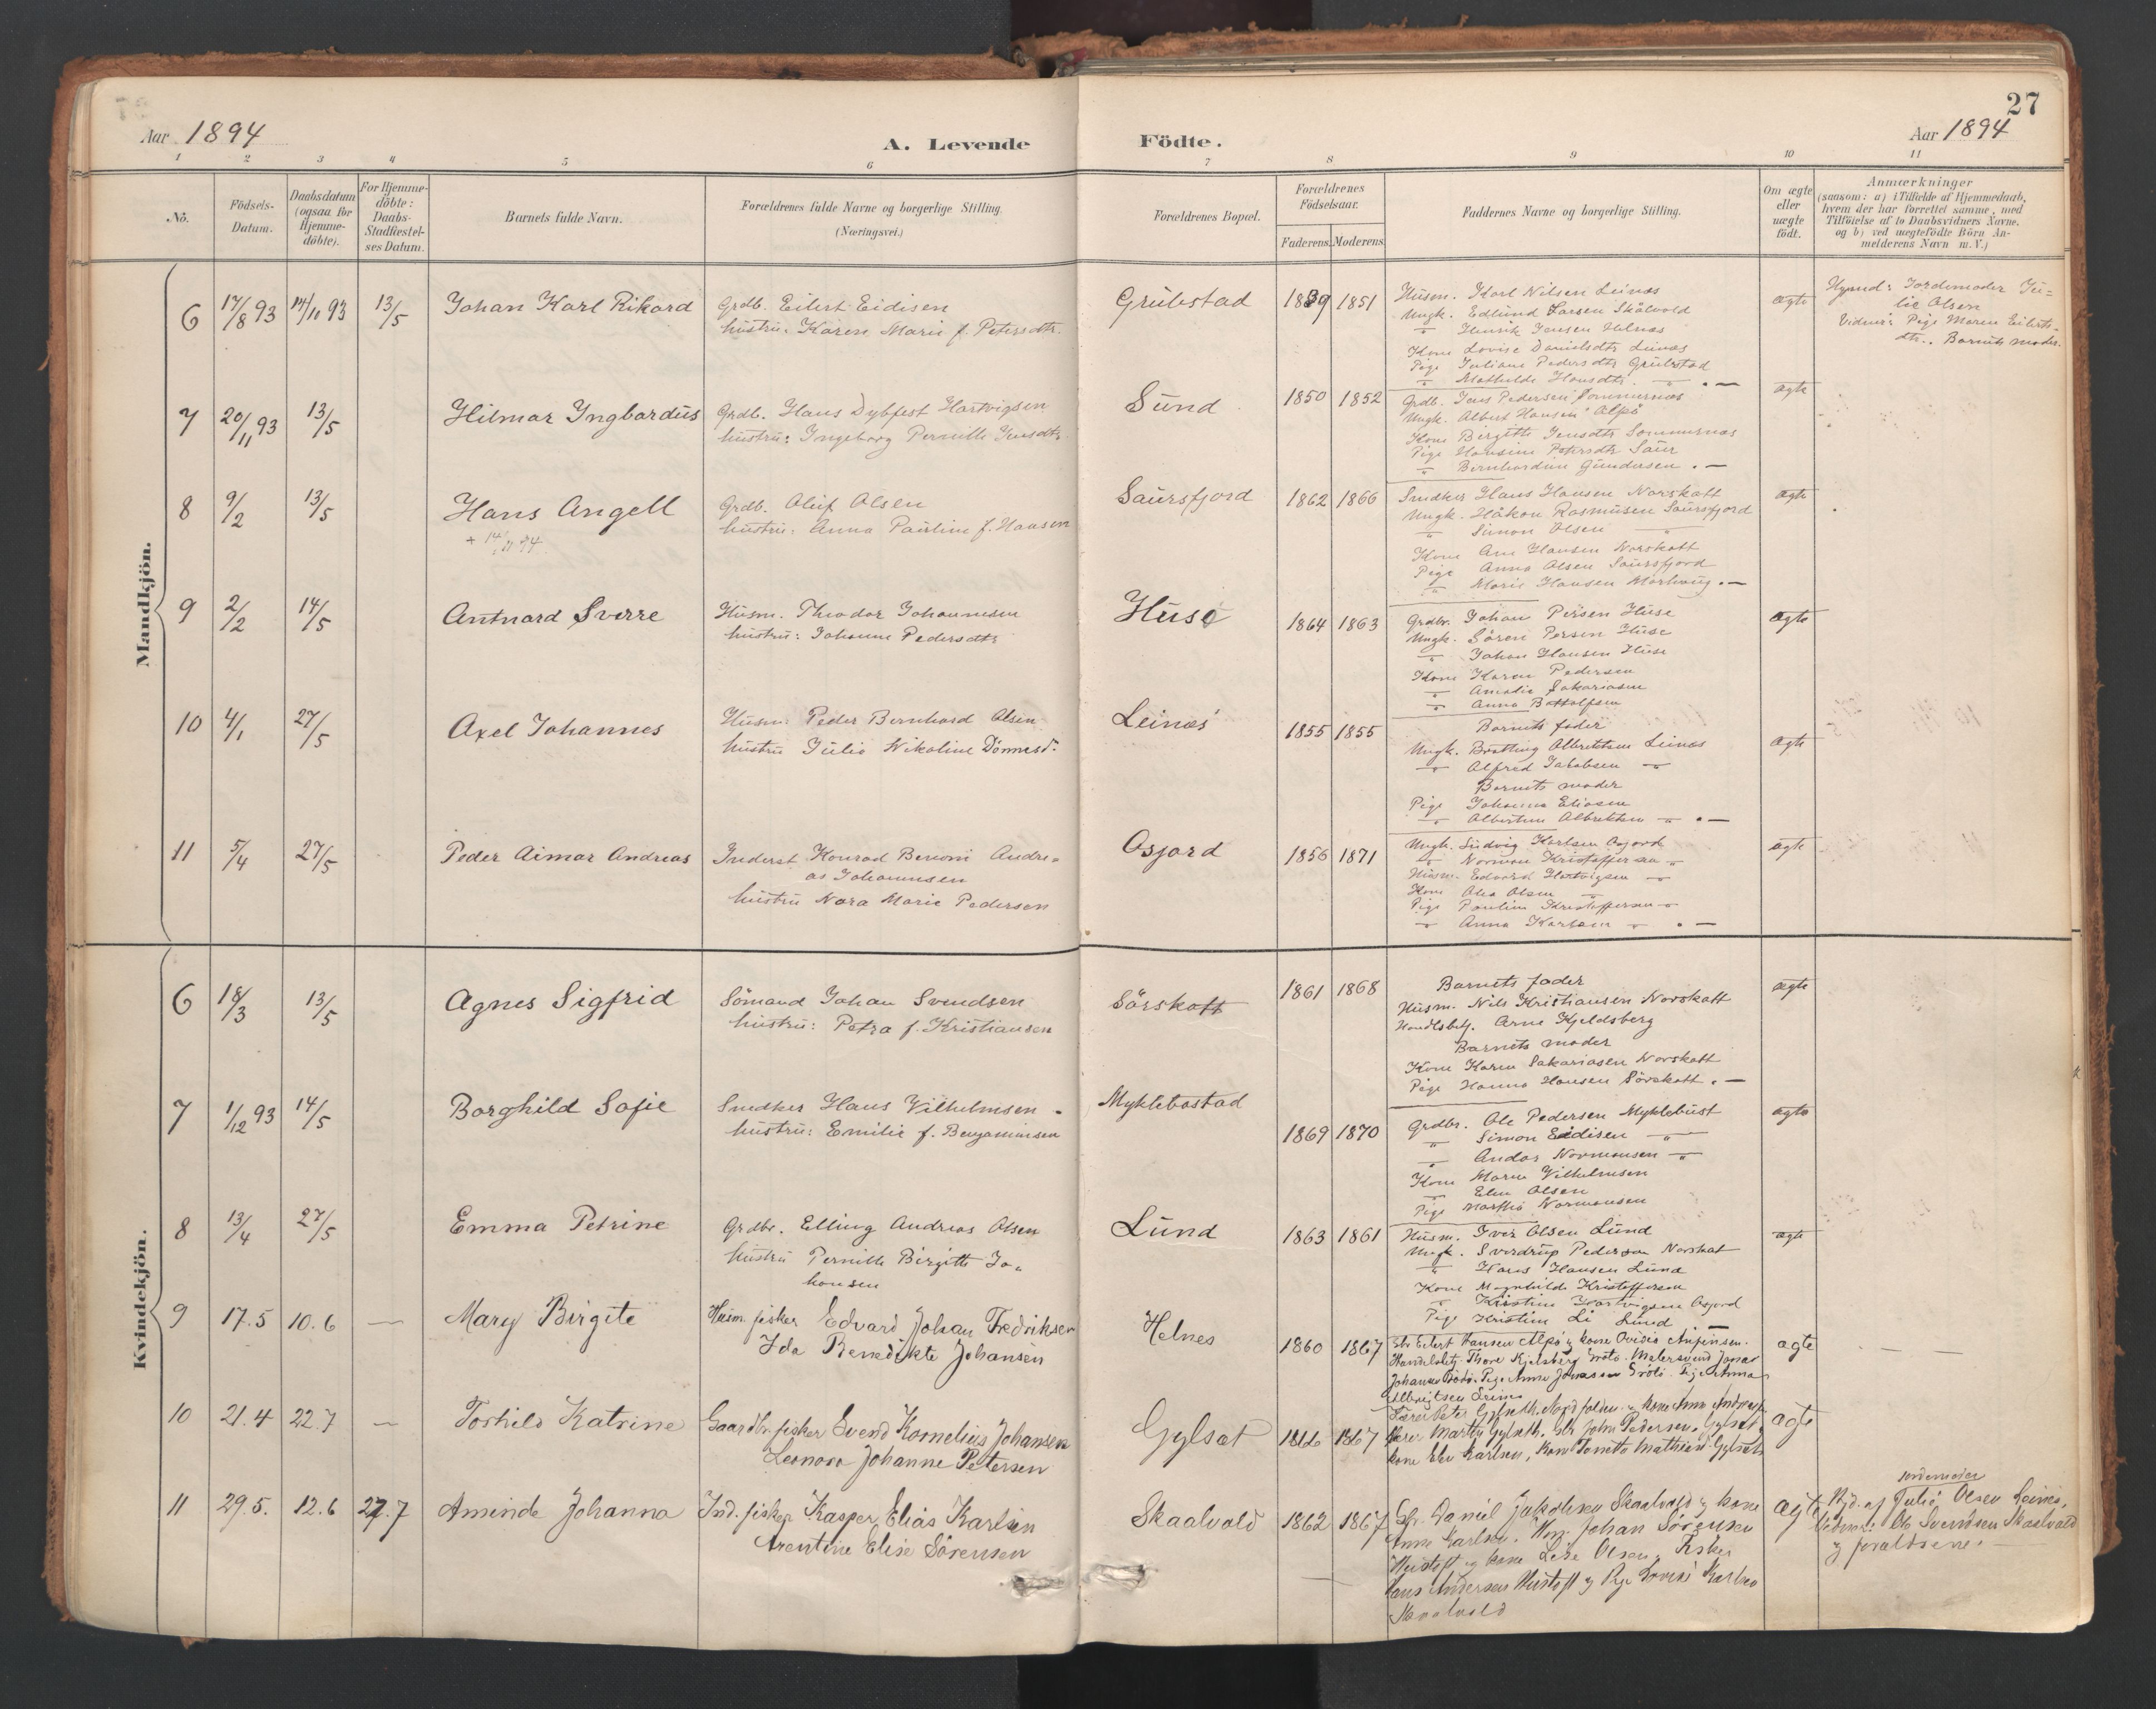 27
Aar 1894
A. Levende Födte.
Aar 1894
1 2 3 4 5 6 7 8 9 10 11
No.
Födsels-
Datum.
Daabsdatum
(ogsaa for
Hjemme-
döbte).
For Hjemme-
döbte:
Daabs-
Stadfæstel-
ses Datum.
Barnets fulde Navn.
Forældrenes fulde Navne og borgerlige Stilling.
(Næringsvei.)
Forældrenes Bopæl.
Forældrenes
Födselsaar.
Faderens. Moderens.
Faddernes Navne og borgerlige Stilling.
Om ægte
eller
uægte
födt.
Anmærkninger
(saasom: a) i Tilfælde af Hjemmedaab,
hvem der har forrettet samme, med
Tilföielse af to Daabsvidners Navne.
og b) ved uægtefödte Börn An-
melderens Navn m.V.)
Mandkjön.
6 17/8 93 14/10 93 13/5 Johan Karl Rikard
Grdb. Eilert Eidisen
hustru: Karen Marie f. Petersdtr.
Grübstad 1839 1851
Husm. Karl Nilsen Leinæs
Ungk. Edlund Larsen Skålvold
" Henrik Jensen Helnæs
Kone Lovise Danielsdtr Leinæs
Pige Juliane Pedersdtr Grübstad
" Mathilde Hansdtr. " . —
ægte
Hjmd: Jordemoder Ju-
lie Olsen
Vidner: Pige Maren Eilerts-
dtr.. Barnets moder.
7 20/11 93 13/5 Hilmar Ingbardus
Grdb. Hans Dybfest Hartvigsen
hustru: Ingeborg Pernille Jensdtr
Sund 1850 1852
Grdb. Jens Pedersen Sommernæs
Ungk. Albert Hansen Alpö
Kone Birgitte Jensdtr Sommernæs
Pige Hansine Petersdtr Saur
" Bernhardine Gundersen . —
ægte
8 9/2 13/5 Hans Angell
+ 14/11 94.
Grdb. Oluf Olsen
hustru: Anna Pauline f. Hansen
Saursfjord 1862 1866
Snedker Hans Hansen Norskott
Ungk. Håkon Rasmusen Saursfjord
" Simon Olsen "
Kone Ane Hansen Norskott
Pige Anna Olsen Saursfjord
" Marie Hansen . —
ægte
9 2/2 14/5 Antnard Sverre
Husm. Theodor Johannesen
hustru: Johanne Pedersdtr
Huse 1864 1863
Grdbr. Johan Persen Huse
Ungk. Sören Persen Huse
" Johan Hansen Huse
Kone Karen Pedersen
" Amalie Sakariasen
" Anna Bottolfsen
ægte
10 4/1 27/5 Axel Johannes
Husm: Peder Bernhard Olsen
hustru Julie Nikoline Dönnesd.
Leinæs 1855 1855
Barnets fader
Ungk. Brotling Albrektsen Leinæs
" Alfred Jakobsen "
Barnets moder
Pige Johanna Eliasen
" Albertine Albrektsen " . —
ægte
11 5/4 27/5 Peder Aimar Andreas
Inderst Konrad Benoni Andre-
as Johannesen
hustru Nora Marie Pedersen
Osjord 1856 1871
Ungk. Ludvig Karlsen Osjord
" Norman Kristoffersen "
Husm. Edvard Hartvigsen "
Kone Olea Olsen "
Pige Pauline Kristoffersen "
" Anna Karlsen " . —
ægte
Kvindekjön.
6 18/3 13/5 Agnes Sigfrid
Sömand Johan Svendsen
hustru: Petra f. Kristiansen
Sörskott 1861 1868
Barnets fader
Husm. Nils Kristiansen Norskott
Handlsbtj. Arne Kjeldsberg
Barnets moder
Kone Karen Sakariasen Norskott
Pige Hanna Hansen Sörskott . —
ægte
7 1/12 93 14/5 Borghild Sofie
Snedker Hans Vilhelmsen -
hustru: Emilie f. Benjaminsen
Myklebostad 1869 1870
Grdbr. Ole Pedersen Myklebust
" Simon Eidisen "
" Andor Normansen "
Kone Maren Vilhelmsen
" Elen Olsen
Pige Martha Normansen
ægte
8 13/4 27/5 Emma Petrine
Grdbr. Elling Andreas Olsen
hustru Pernille Birgitte Jo-
hansen
Lund 1863 1861
Husm. Iver Olsen Lund
Ungk. Sverdrup Pedersen Norskot
" Hans Hansen Lund
Kone Magnhilde Kristoffersen
" Kristine Hartvigsen Osjord
Pige Kristine Li Lund . —
ægte
9 17.5 10.6 — Mary Birgite
Husm. fisker Edvard Johan Fredriksen
Ida Benedikte Johansen
Helnes 1860 1867
Gbr. Eilert Hansen Alpö og kone Ovidia Anfinsen.
Handelsbetj. Thore Kjelsberg Grötö. Malersvend Jonas
Johansen Bodö. Pige Anna Jonassen Grötö. Pige Anna
Albrigtsen Leines
ægte — — —
10 21.4 22.7 — Torhild Katrine
Gaardbr. fisker Svend Kornelius Johansen
Leonora Johanne Petersen
Gylset 1866 1867
Lærer Peter Gylseth. Nordfolden og kone Anna
Lærer Martin Gylseth. Gbr John Pedersen, Gylset og
kone Elen Karlsen, kone Tomitta Mathisen Gylset.
ægte
11 29.5. 12.6 27.7 Aminde Johanna
Ind. fisker Kasper Elias Karlsen
Arentine Elise Sörensen
Skaalvold 1862 1867
Gbr. Daniel Jakobsen Skaalvold og kone
Anne Karlsen. Husm. Johan Sörensen
og kone Lise Olsen, Fisker
Hans Andersen og Pige Lovise Karlsen
Skaalvold
ægte
jordemoder
Hjd. af Julie Olsen Leines,
Vidner: Ole Svendsen Skaalvold
og forældrene. —